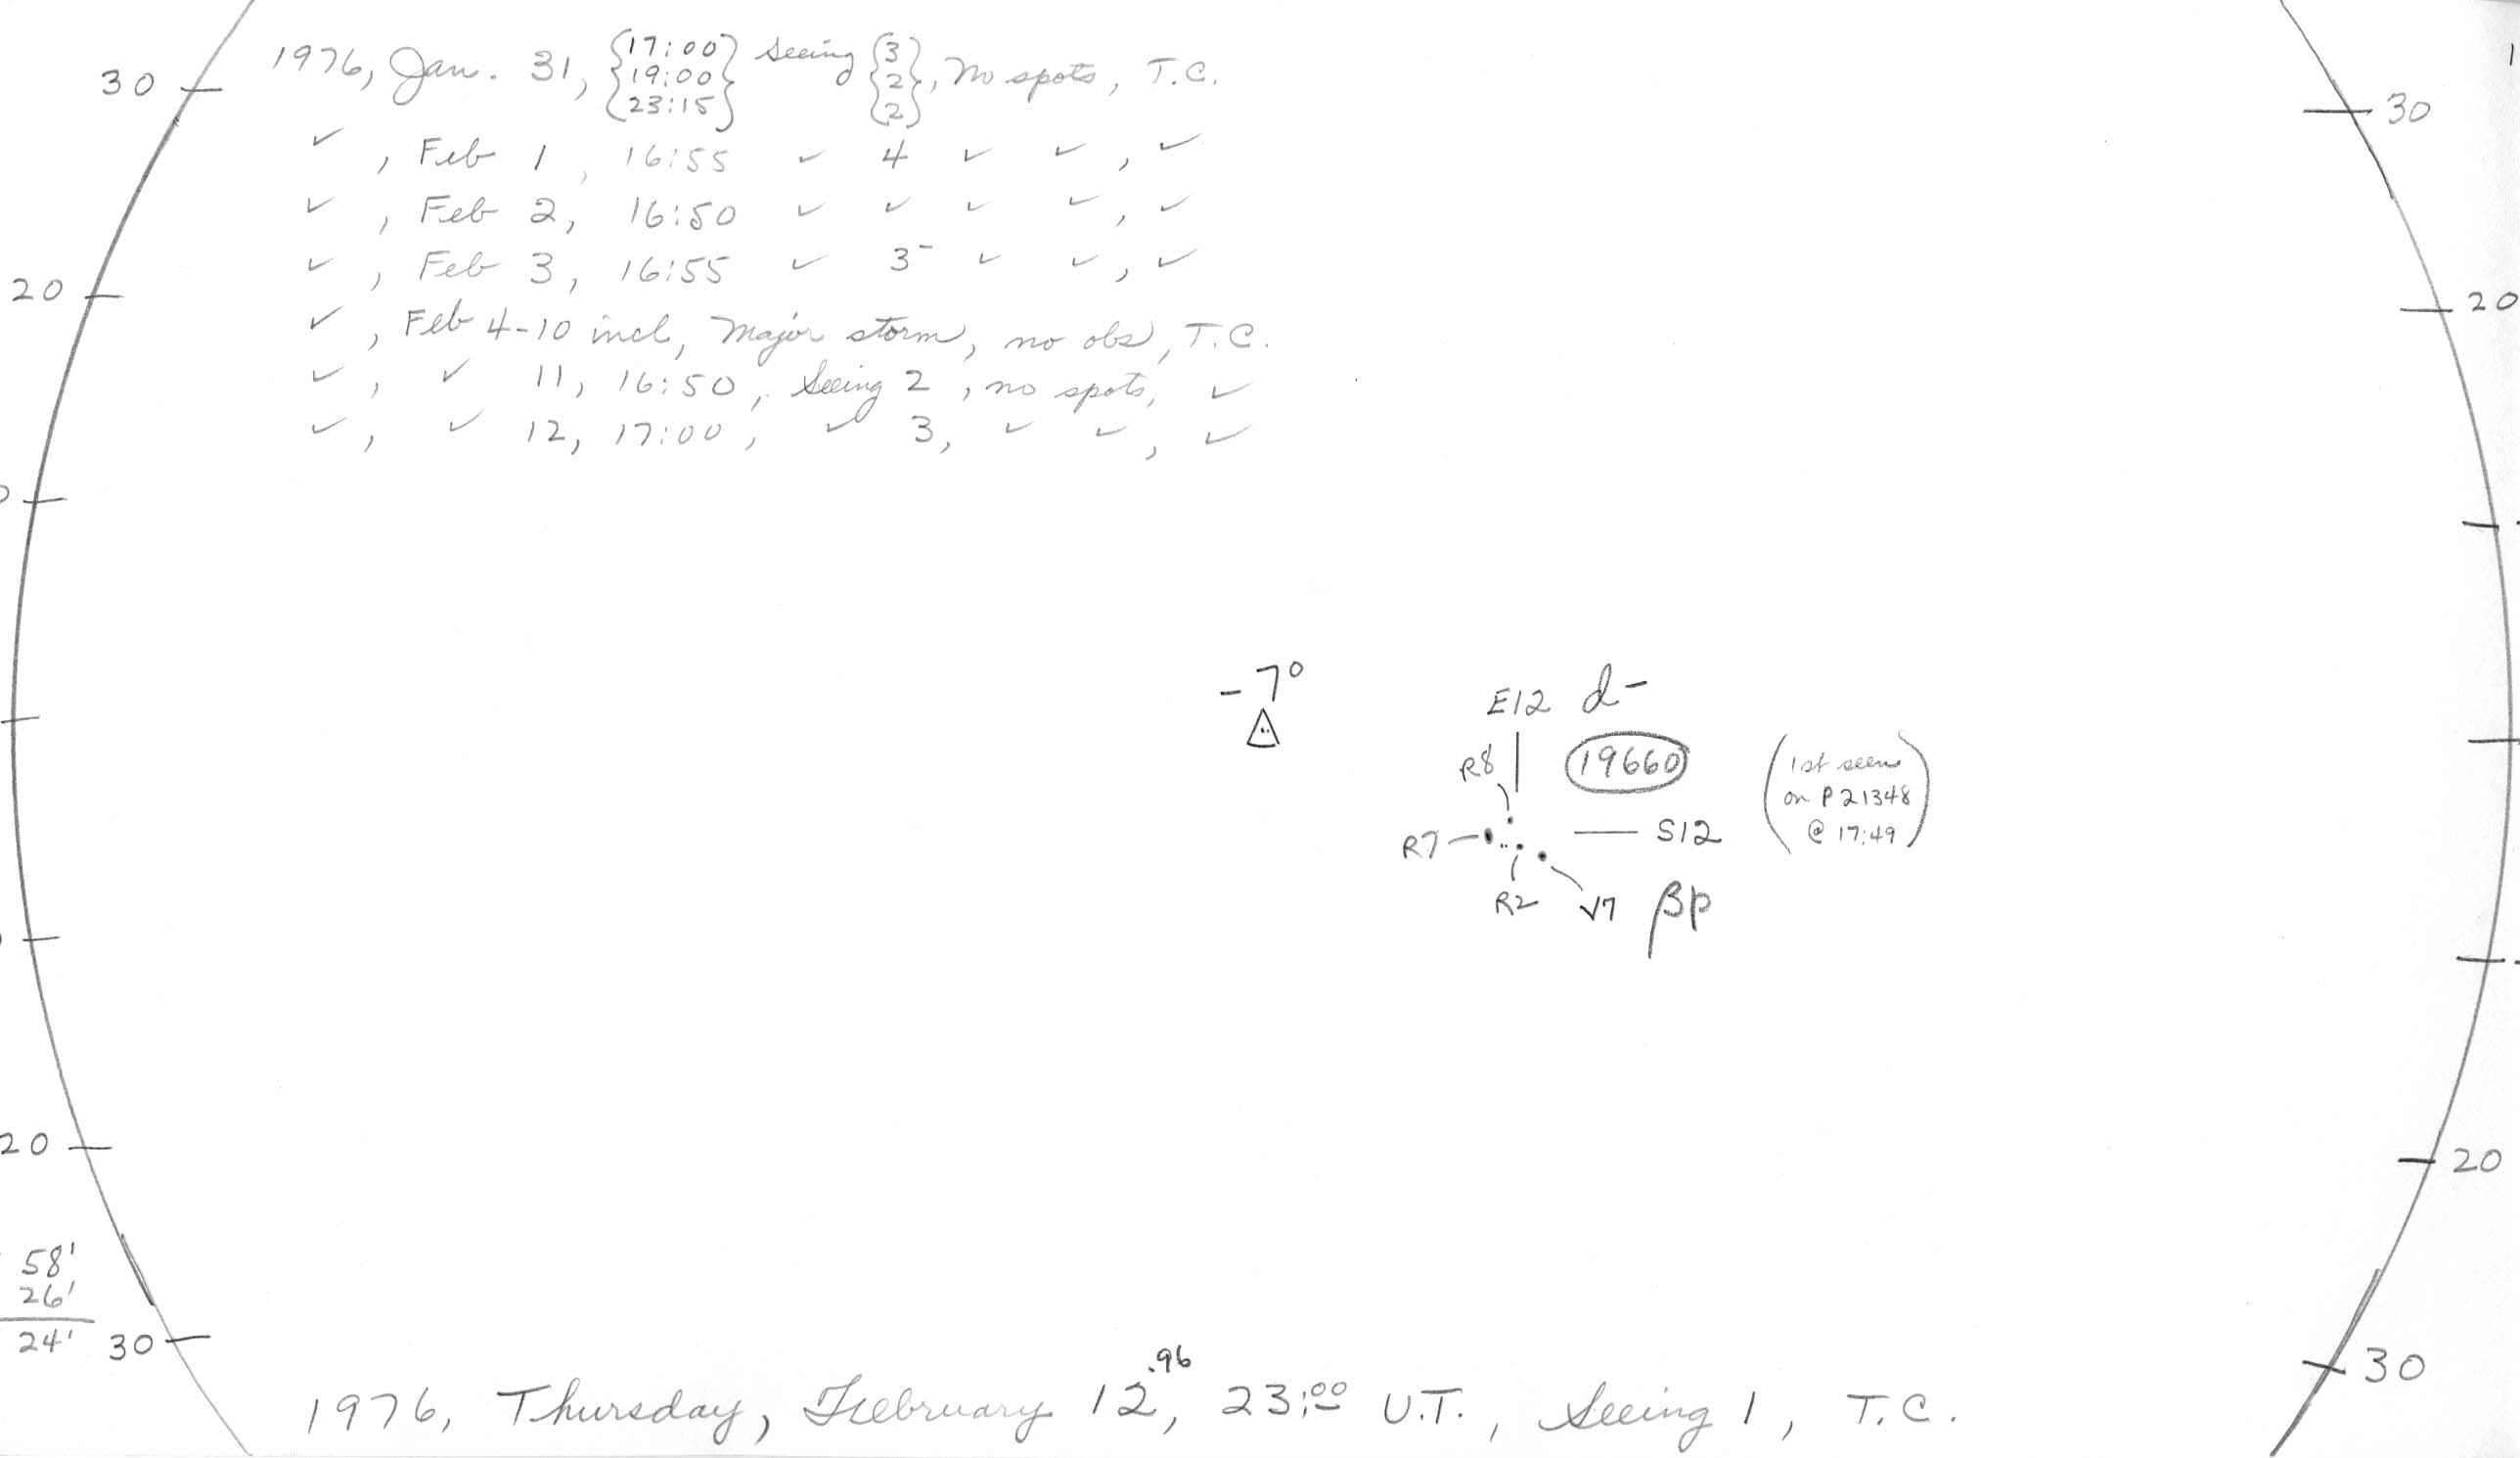 1976, Jan. 31, {17:00 19:00 23:15} Seeing {3 2 2}, No spots, T.C.
✓, Feb 1, 16:55 ✓ 4 ✓ ✓, ✓
✓, Feb 2, 16:50 ✓ ✓ ✓ ✓, ✓
✓, Feb 3, 16:55 ✓ 3- ✓ ✓, ✓
✓, Feb 4-10 incl, Major storm, no obs, T.C.
✓, ✓ 11, 16:50, Seeing 2, no spots, ✓
✓, ✓ 12, 17:00, ✓ 3, ✓ ✓, ✓
30
20
30
20
-7°
E12 d-
R8
19660
(1st seen
on P21348
@ 17:49)
R7
S12
R2
V7
βp
20
20
58'
26'
24'
30
30
1976, Thursday, February 12.96, 23:00 U.T., Seeing 1, T.C.